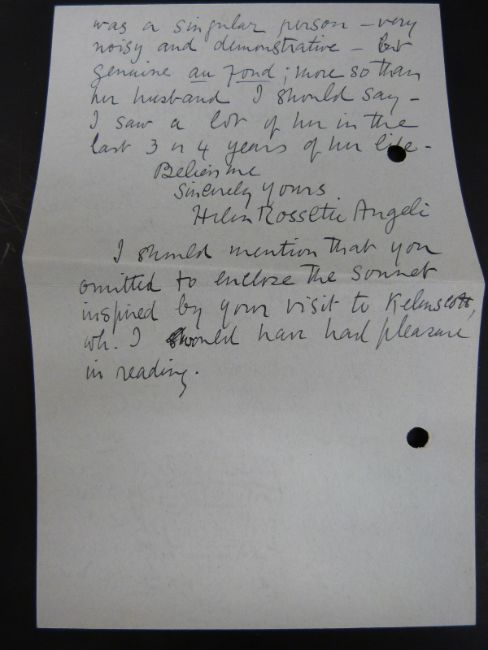 was a singular person – very
noisy and demonstrative – but
genuine au fond; more so than
her husband I should say –
I saw a lot of her in the
last 3 or 4 years of her life –
Believe me
Sincerely yours
Helen Rossetti Angeli
I should mention that you
omitted to enclose the sonnet
inspired by your visit to Kelmscott,
wh. I would have had pleasure
in reading.